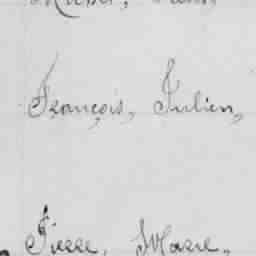 François, Julien,
Pierre, Marie,